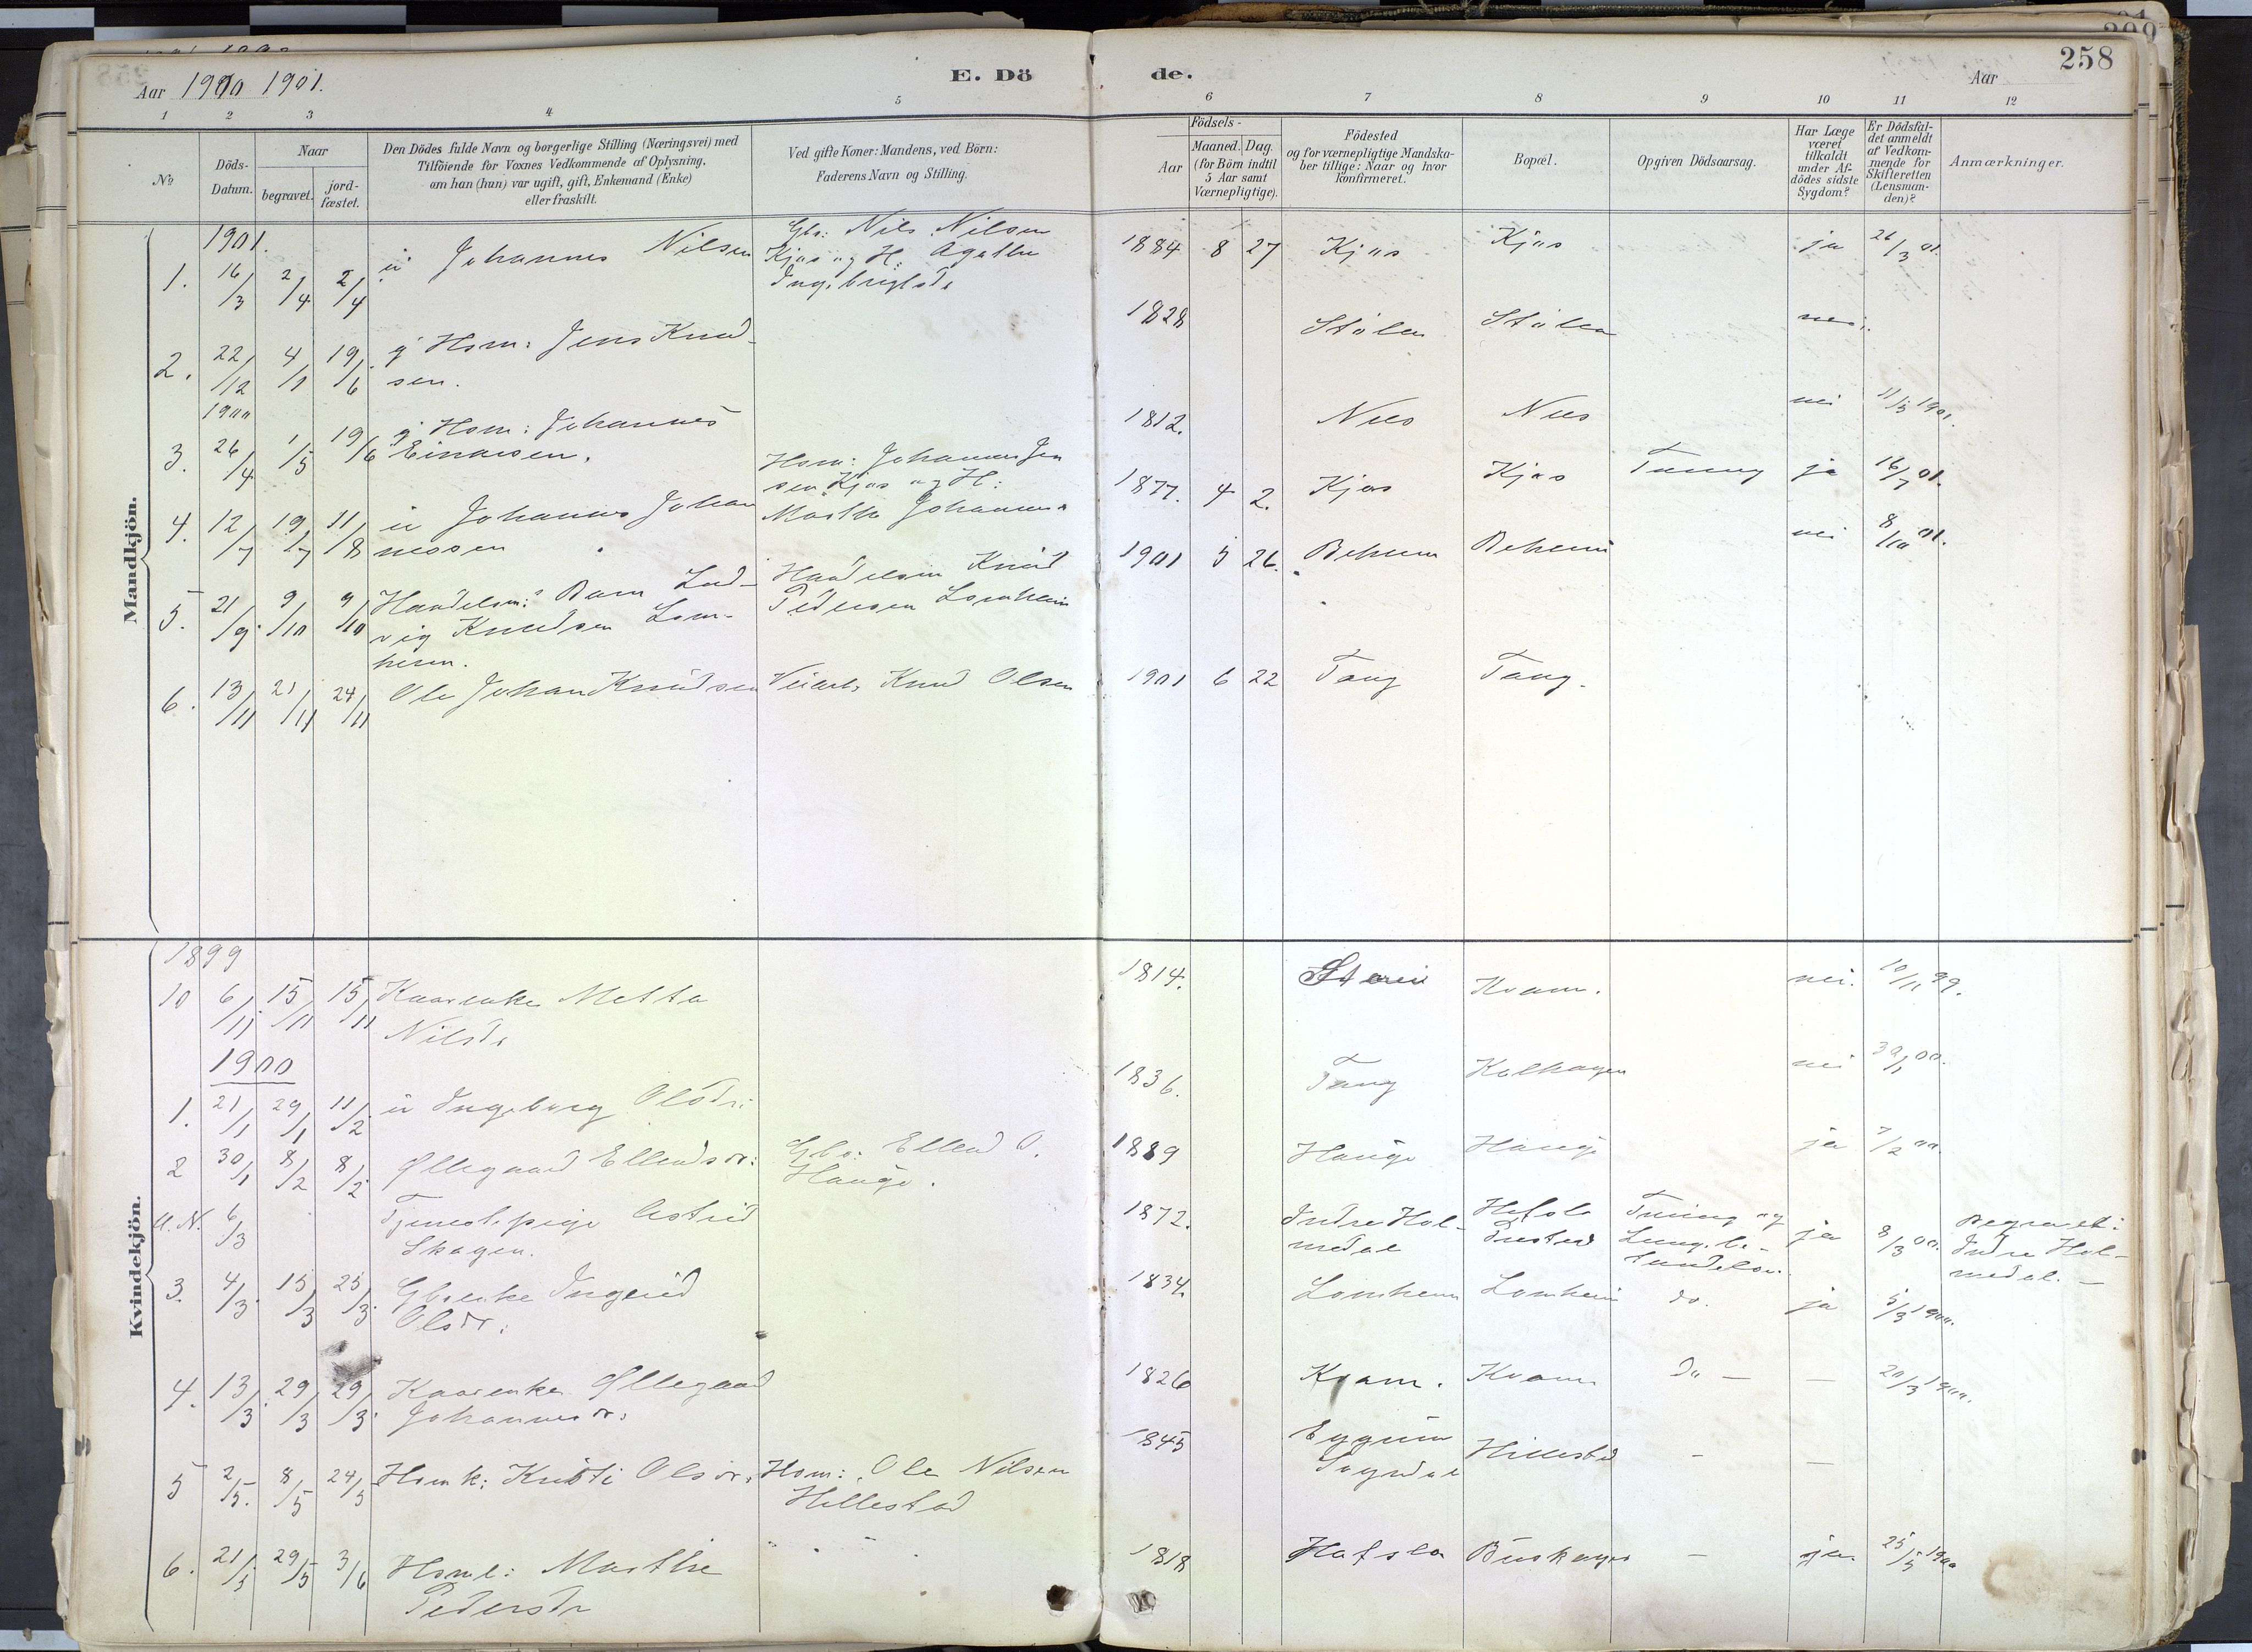 258
Aar 1900 1901.
E. Dö de.
Aar
1 2 3 4 5 6 7 8 9 10 11 12
No
Döds-Datum.
Naar
begravet.
jord-fæstet.
Den Dödes fulde Navn og borgerlige Stilling (Næringsvei) med
Tilföiende for Voxnes Vedkommende af Oplysning,
om han (hun) var ugift, gift, Enkemand (Enke)
eller fraskilt.
Ved gifte Koner: Mandens, ved Börn:
Faderens Navn og Stilling.
Födsels-
Aar
Maaned. Dag.
(for Börn indtil
5 Aar samt
Værnepligtige).
Födested
og for værnepligtige Mandska-
ber tillige: Naar og hvor
konfirmeret.
Bopæl.
Opgiven Dödsaarsag.
Har Læge
været
tilkaldt
under Af-
dödes sidste
Sygdom?
Er Dödsfal-
det anmeldt
af Vedkom-
mende for
Skifteretten
(Lensman-
den)?
Anmærkninger.
Mandkjön.
1901.
1. 16/3 2/4 2/4 u Johannes Nilsen
Gbr: Nils Nilsen
Kjos og H: Agathe
Ingebrigtsd.
1884 8 27 Kjos Kjos ja 26/3 01.
2. 22/12 4/1 19/6 g Hsm: Jens Knud-
sen.
1828 Stølen Stølen nei.
1900
3. 26/4 1/5 19/6 g Hsm: Johannes
Einarsen.
1812. Nes Nes nei 11/5 1901.
4. 12/7 19/7 11/8 u Johannes Johan
nessen
Hsm: Johannes Jen
sen Kjos og H:
Marthe Johannes
1877. 4 2. Kjos Kjos Tæring ja 16/7 01.
5. 21/9. 9/10 9/10 Handelsm: Barn Lud-
vig Knudsen Lom-
heim.
Handelsm Knud
Pedersen Lomheim
1901 5 26. Beheim Beheim nei 8/10 01.
6. 13/11 21/11 24/11 Ole Johan Knudsen
Veiarb. Knud Olsen
1901 6 22 Tang Tang.
Kvindekjön.
1899
10 6/11 15/11 15/11 Kaarenke Metta
Nilsd.
1814. Kvam. nei. 10/11 99.
1900
1. 21/1 29/1 11/2 u Ingeborg Olsdr:
1836. Tang Kolhagen nei 30/1 00.
2 30/1 8/2 8/2 Øllegaard Ellendsdr:
Gbr: Ellend O.
Hauge.
1889 Hauge Hauge ja 7/2 00.
U. N. 6/3 Tjenestepige Astrid
Skagen.
1872. Indre Hol-
medal
Hafslo
Tæring og
Lunge be-
tændelse.
ja 8/3 00. Begravet:
Indre Hol-
medal. —
3. 4/3. 15/3 25/3. Gbrenke Ingerid
Olsdr:
1834. Lomheim Lomheim do. ja 5/3 1900.
4. 13/3. 29/3 29/3. Kaarenke Øllegaard
Johannesdr:
1826 Kvam. Kvam do — — 20/3 1900.
5 2/5. 8/5 24/5 Hsmk: Kristi Olsdr.
Hsm: Ole Nilsen
Hillestad
1845 Eggum
Sogndal
Hillestad — —
6. 21/5 29/5 3/6 Hsmk: Marthe
Pedersdr
1818 Hafslo Buskagen — ja. 25/5 1900